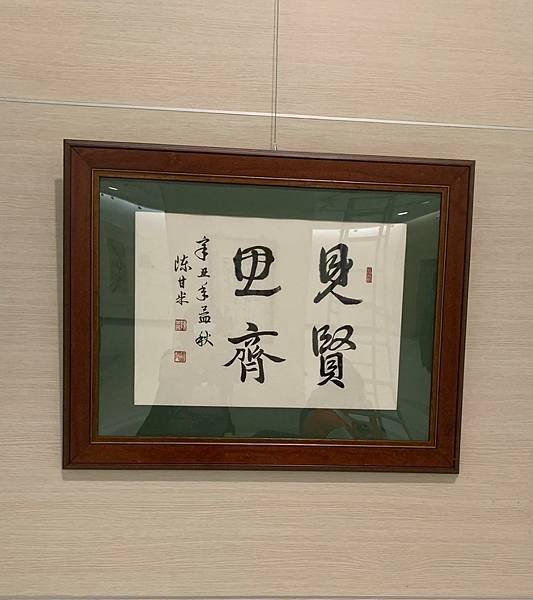 見賢
思齊
辛丑年孟秋
陳甘米